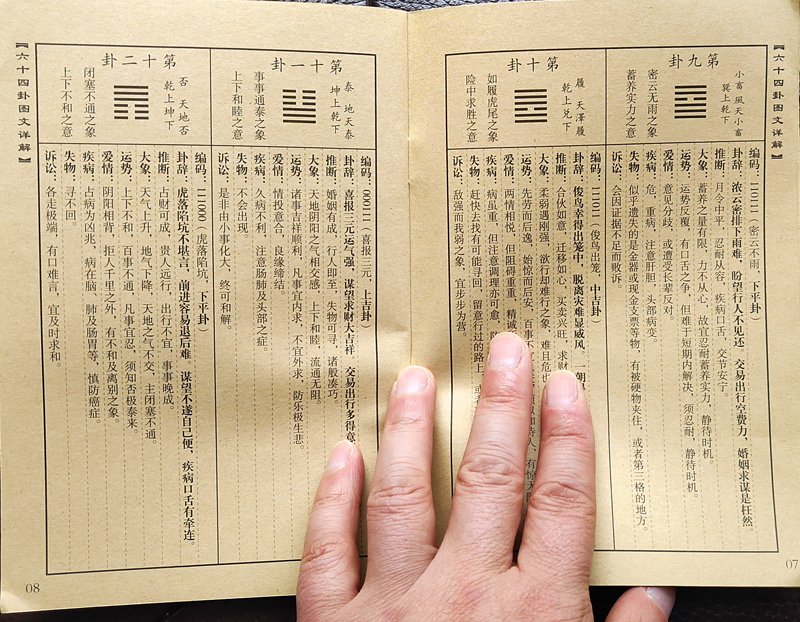 【六十四卦图文详解】
第九卦
小畜 風天小畜
巽上乾下
密云无雨之象
蓄养实力之意
编码：110111（密云不雨，下平卦）
卦辞：浓云密排下雨难，盼望行人不见还。交易出行空费力，婚姻求谋是枉然。
推断：月令中平，忍耐从容，疾病口舌，交节安宁。
大象：蓄养之量有限，力不从心，故宜忍耐蓄养实力，静待时机。
运势：运势反覆，有口舌之争，但难于短期内解决，须忍耐，静待时机。
爱情：意见分歧，或遭受长辈反对。
疾病：危，重病，注意肝胆，头部病变。
失物：似乎遗失的是金器或现金支票等物，有被硬物夹住，或者第三格的地方。
诉讼：会因证据不足而败诉。
第十卦
履 天澤履
乾上兑下
如履虎尾之象
险中求胜之意
编码：111011（俊鸟出笼，中吉卦）
卦辞：俊鸟幸得出笼中，脱离灾难显威风，一朝
推断：合伙如意，迁移如心，买卖兴旺，求财
大象：柔弱遇刚强，欲行却难行之象，难且危也
运势：先劳而后逸，始惊而后安，百事不
爱情：两情相悦，但阻碍重重，精诚
疾病：病虽重，但注意调理亦可愈，
失物：赶快去找有可能寻回，留意行过的路上，或
诉讼：敌强而我弱之象，宜步步为营。
07
第十一卦
泰 地天泰
坤上乾下
事事通泰之象
上下和睦之意
编码：000111（喜报三元，上吉卦）
卦辞：喜报三元运气强，谋望求财大吉祥，交易出行多得意
推断：婚姻有成，行人即至，失物可寻，诸般凑巧。
大象：天地阴阳之气相交感，上下和睦，流通无阻。
运势：诸事吉祥顺利，凡事宜内求，不宜外求，防乐极生悲。
爱情：情投意合，良缘缔结。
疾病：久病不利，注意肠肺及头部之症。
失物：不会出现。
诉讼：是非由小事化大，终可和解。
第十二卦
否 天地否
乾上坤下
闭塞不通之象
上下不和之意
编码：111000（虎落陷坑，下平卦）
卦辞：虎落陷坑不堪言，前进容易退后难。谋望不遂自己便，疾病口舌有牵连。
推断：占财可成，贵人远行，出行不宜，事事晚成。
大象：天气上升，地气下降，天地之气不交，主闭塞不通。
运势：上下不和，百事不通，凡事宜忍，须知否极泰来。
爱情：阴阳相背，拒人千里之外，有不和及离别之象。
疾病：占病为凶兆，病在脑，肺及肠胃等，慎防癌症。
失物：寻不回。
诉讼：各走极端，有口难言，宜及时求和。
【六十四卦图文详解】
08